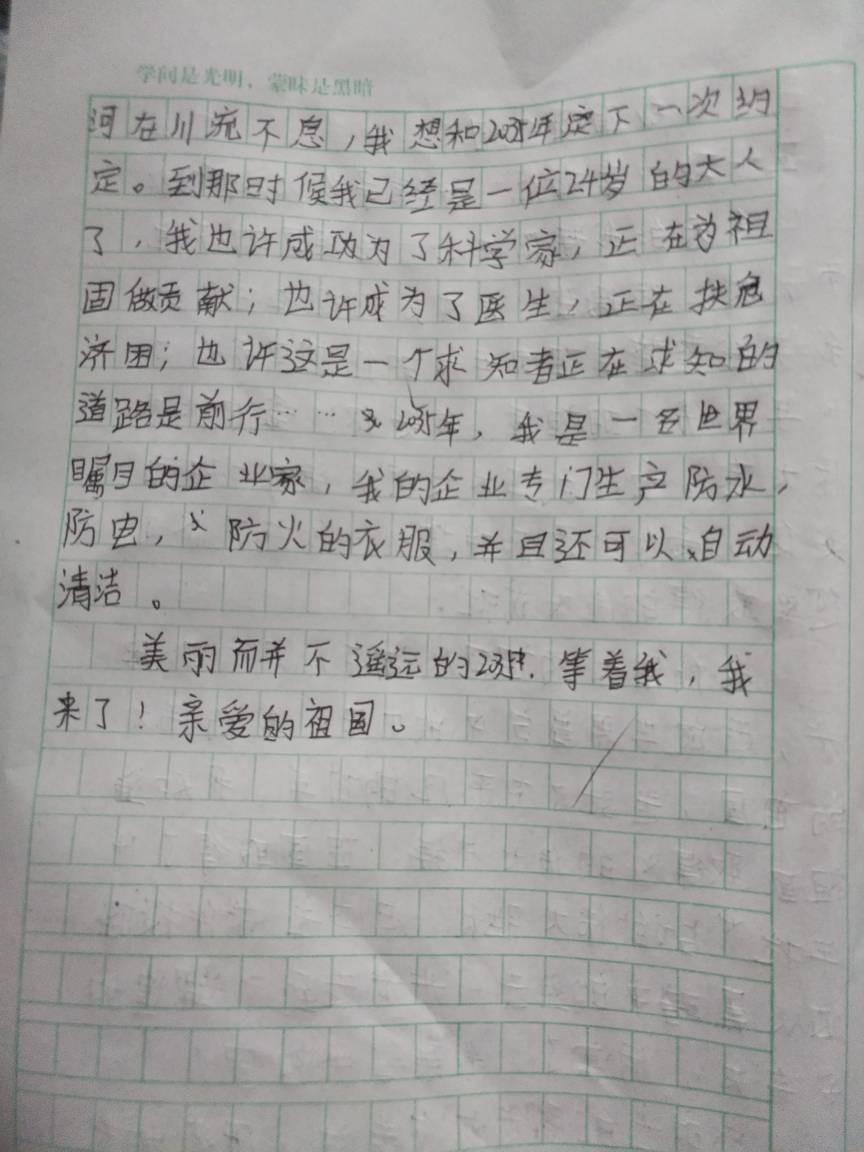 学问是光明，蒙昧是黑暗
河在川流不息，我想和2035年定下一次约
定。到那时候我已经是一位24岁的大人
了，我也许成功为了科学家，正在为祖
国做贡献；也许成为了医生，正在扶危
济困；也许这是一个求知者正在求知的
道路是前行……2035年，我是一名世界
瞩目的企业家，我的企业专门生产防水，
防虫，防火的衣服，并且还可以自动
清洁。
美丽而并不遥远的2035年.等着我，我
来了！亲爱的祖国。